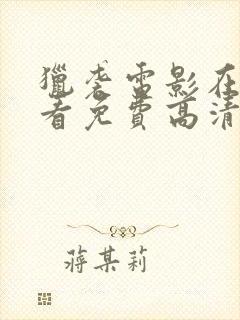 獵袭雷影在
看免費高清
蒋某莉